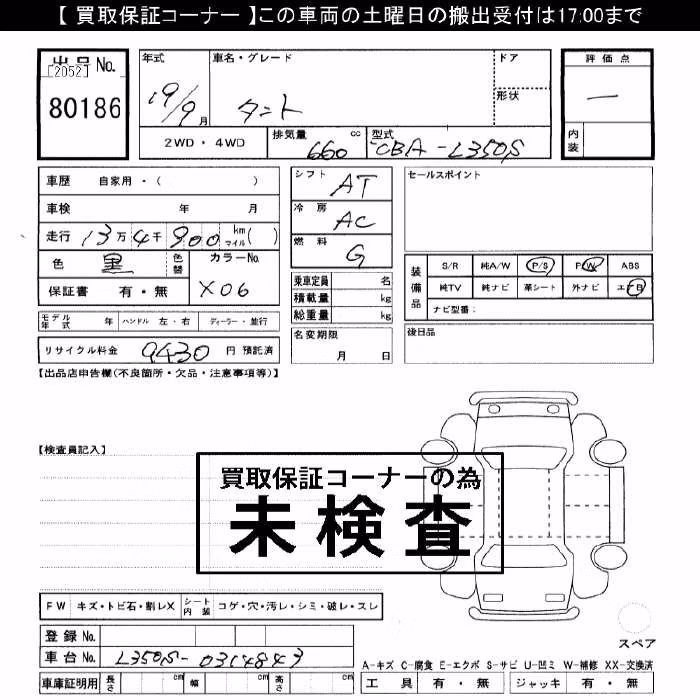 【 買取保証コーナー 】この車両の土曜日の搬出受付は17:00まで
出品No.
[2052]
80186
年式
19/9月
車名・グレード
タント
ドア
形状
評価点
一
内装
2WD・4WD
排気量 660 cc
型式 CBA-L350S
車歴 自家用・( )
車検 年 月
走行 13万4千900 km マイル( )
色 黒 色替 カラーNo.
保証書 有・無 X06
シフト AT
冷房 AC
燃料 G
乗車定員 名
積載量 kg
総重量 kg
名変期限
月 日
セールスポイント
装備品
S/R 純A/W P/S P/W ABS
純TV 純ナビ 革シート 外ナビ エB
ナビ型番:
後日品
モデル年式 年 ハンドル 左・右 ディーラー・並行
リサイクル料金 9430 円 預託済
【出品店申告欄(不良箇所・欠品・注意事項等)】
【検査員記入】
買取保証コーナーの為
未検査
FW キズ・トビ石・割レX シート内装 コゲ・穴・汚レ・シミ・破レ・スレ
登録No.
車台No. L350S-
車庫証明用 長さ cm 幅 cm 高さ cm
スペア
A-キズ C-腐食 E-エクボ S-サビ U-凹ミ W-補修 XX-交換済
工具 有・無 ジャッキ 有・無